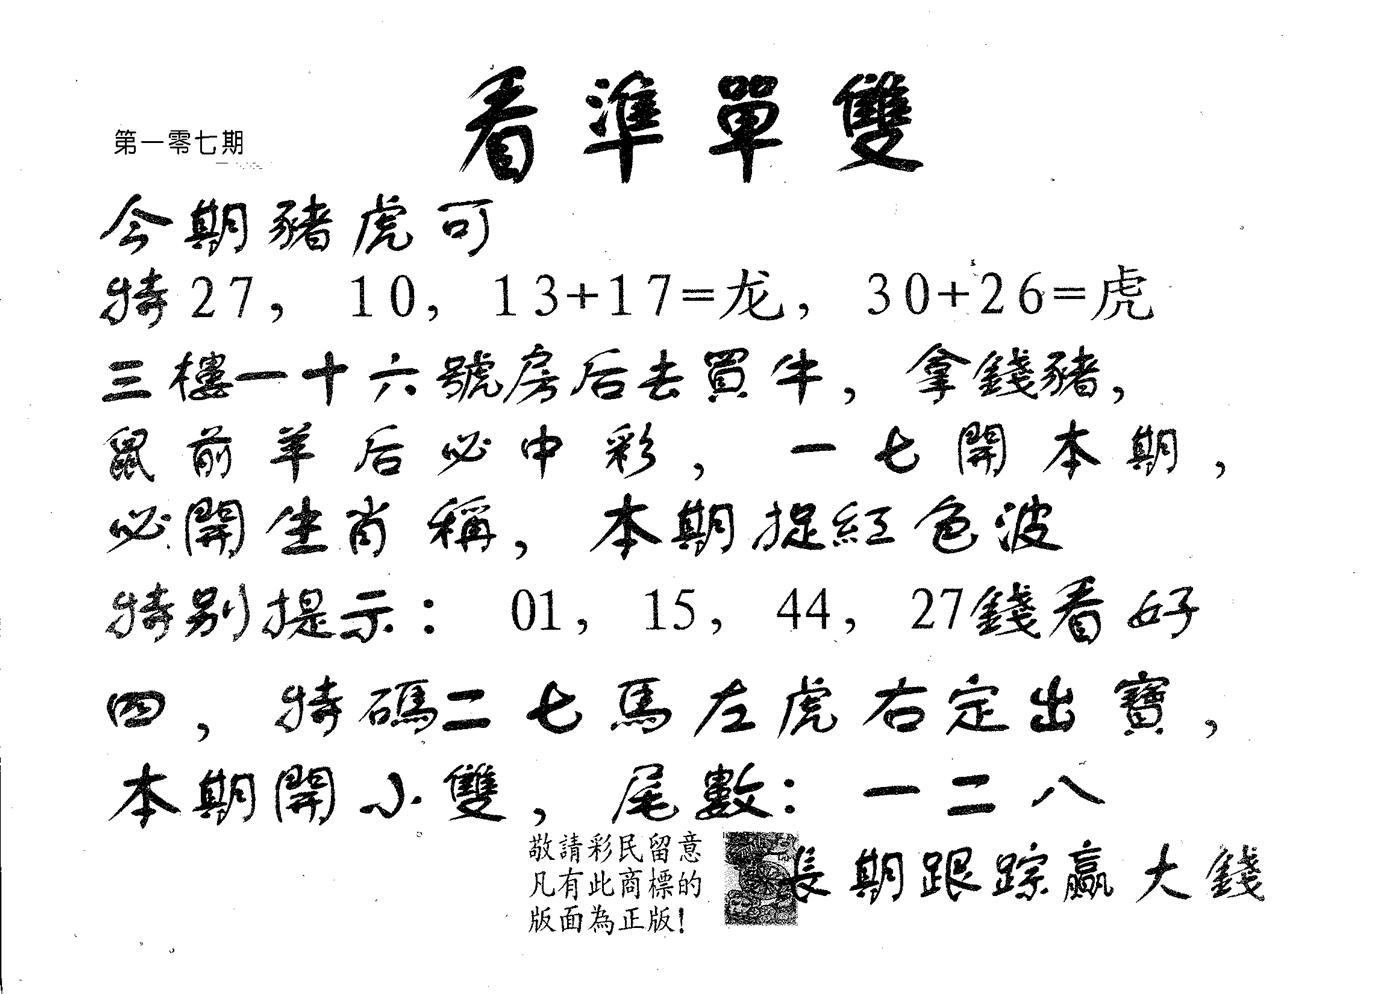 看準單雙
第一零七期
今期豬虎可
特27，10，13+17=龙，30+26=虎
三樓一十六號房后去買牛，拿錢豬，
鼠前羊后必中彩，一七開本期，
必開生肖稱，本期捉紅色波
特別提示：01，15，44，27錢看好
四，特碼二七馬左虎右定出寶，
本期開小雙，尾數：一二八
敬請彩民留意
凡有此商標的
版面為正版！
長期跟踪贏大錢